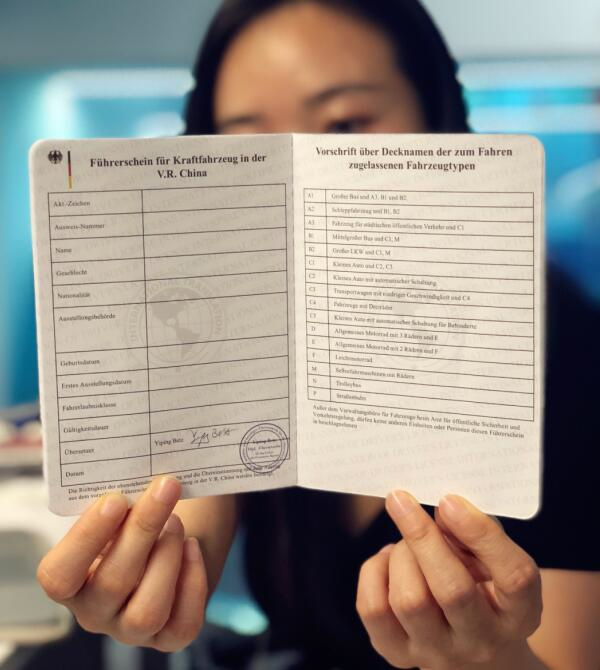 Führerschein für Kraftfahrzeug in der
V.R. China
Akt.-Zeichen
Ausweis-Nummer
Name
Geschlecht
Nationalität
Ausstellungsbehörde
Geburtsdatum
Erstes Ausstellungsdatum
Fahrerlaubnisklasse
Gültigkeitsdauer
Übersetzer
Yiping Betz
Datum
Die Richtigkeit der
und die Übereinstimmung
aus dem
in der V.R. China
Vorschrift über Decknamen der zum Fahren
zugelassenen Fahrzeugtypen
A1 Großer Bus und A3, B1 und B2
A2 Schleppfahrzeug und B1, B2
A3 Fahrzeug für städtischen öffentlichen Verkehr und C1
B1 Mittelgroßer Bus und C1, M
B2 Großer LKW und C1, M
C1 Kleines Auto und C2, C3
C2 Kleines Auto mit automatischer Schaltung
C3 Transportwagen mit niedriger Geschwindigkeit und C4
C4 Fahrzeuge mit Dreiräder
C5 Kleines Auto mit automatischer Schaltung für Behinderte
D Allgemeines Motorrad mit 3 Rädern und E
E Allgemeines Motorrad mit 2 Rädern und F
F Leichtmotorrad
M Selbstfahrmaschinen mit Rädern
N Trolleybus
P Straßenbahn
Außer dem Verwaltungsbüro für Fahrzeuge beim Amt für öffentliche Sicherheit und
Verkehrsregelung, dürfen keine anderen Einheiten oder Personen diesen Führerschein
in beschlagnehmen